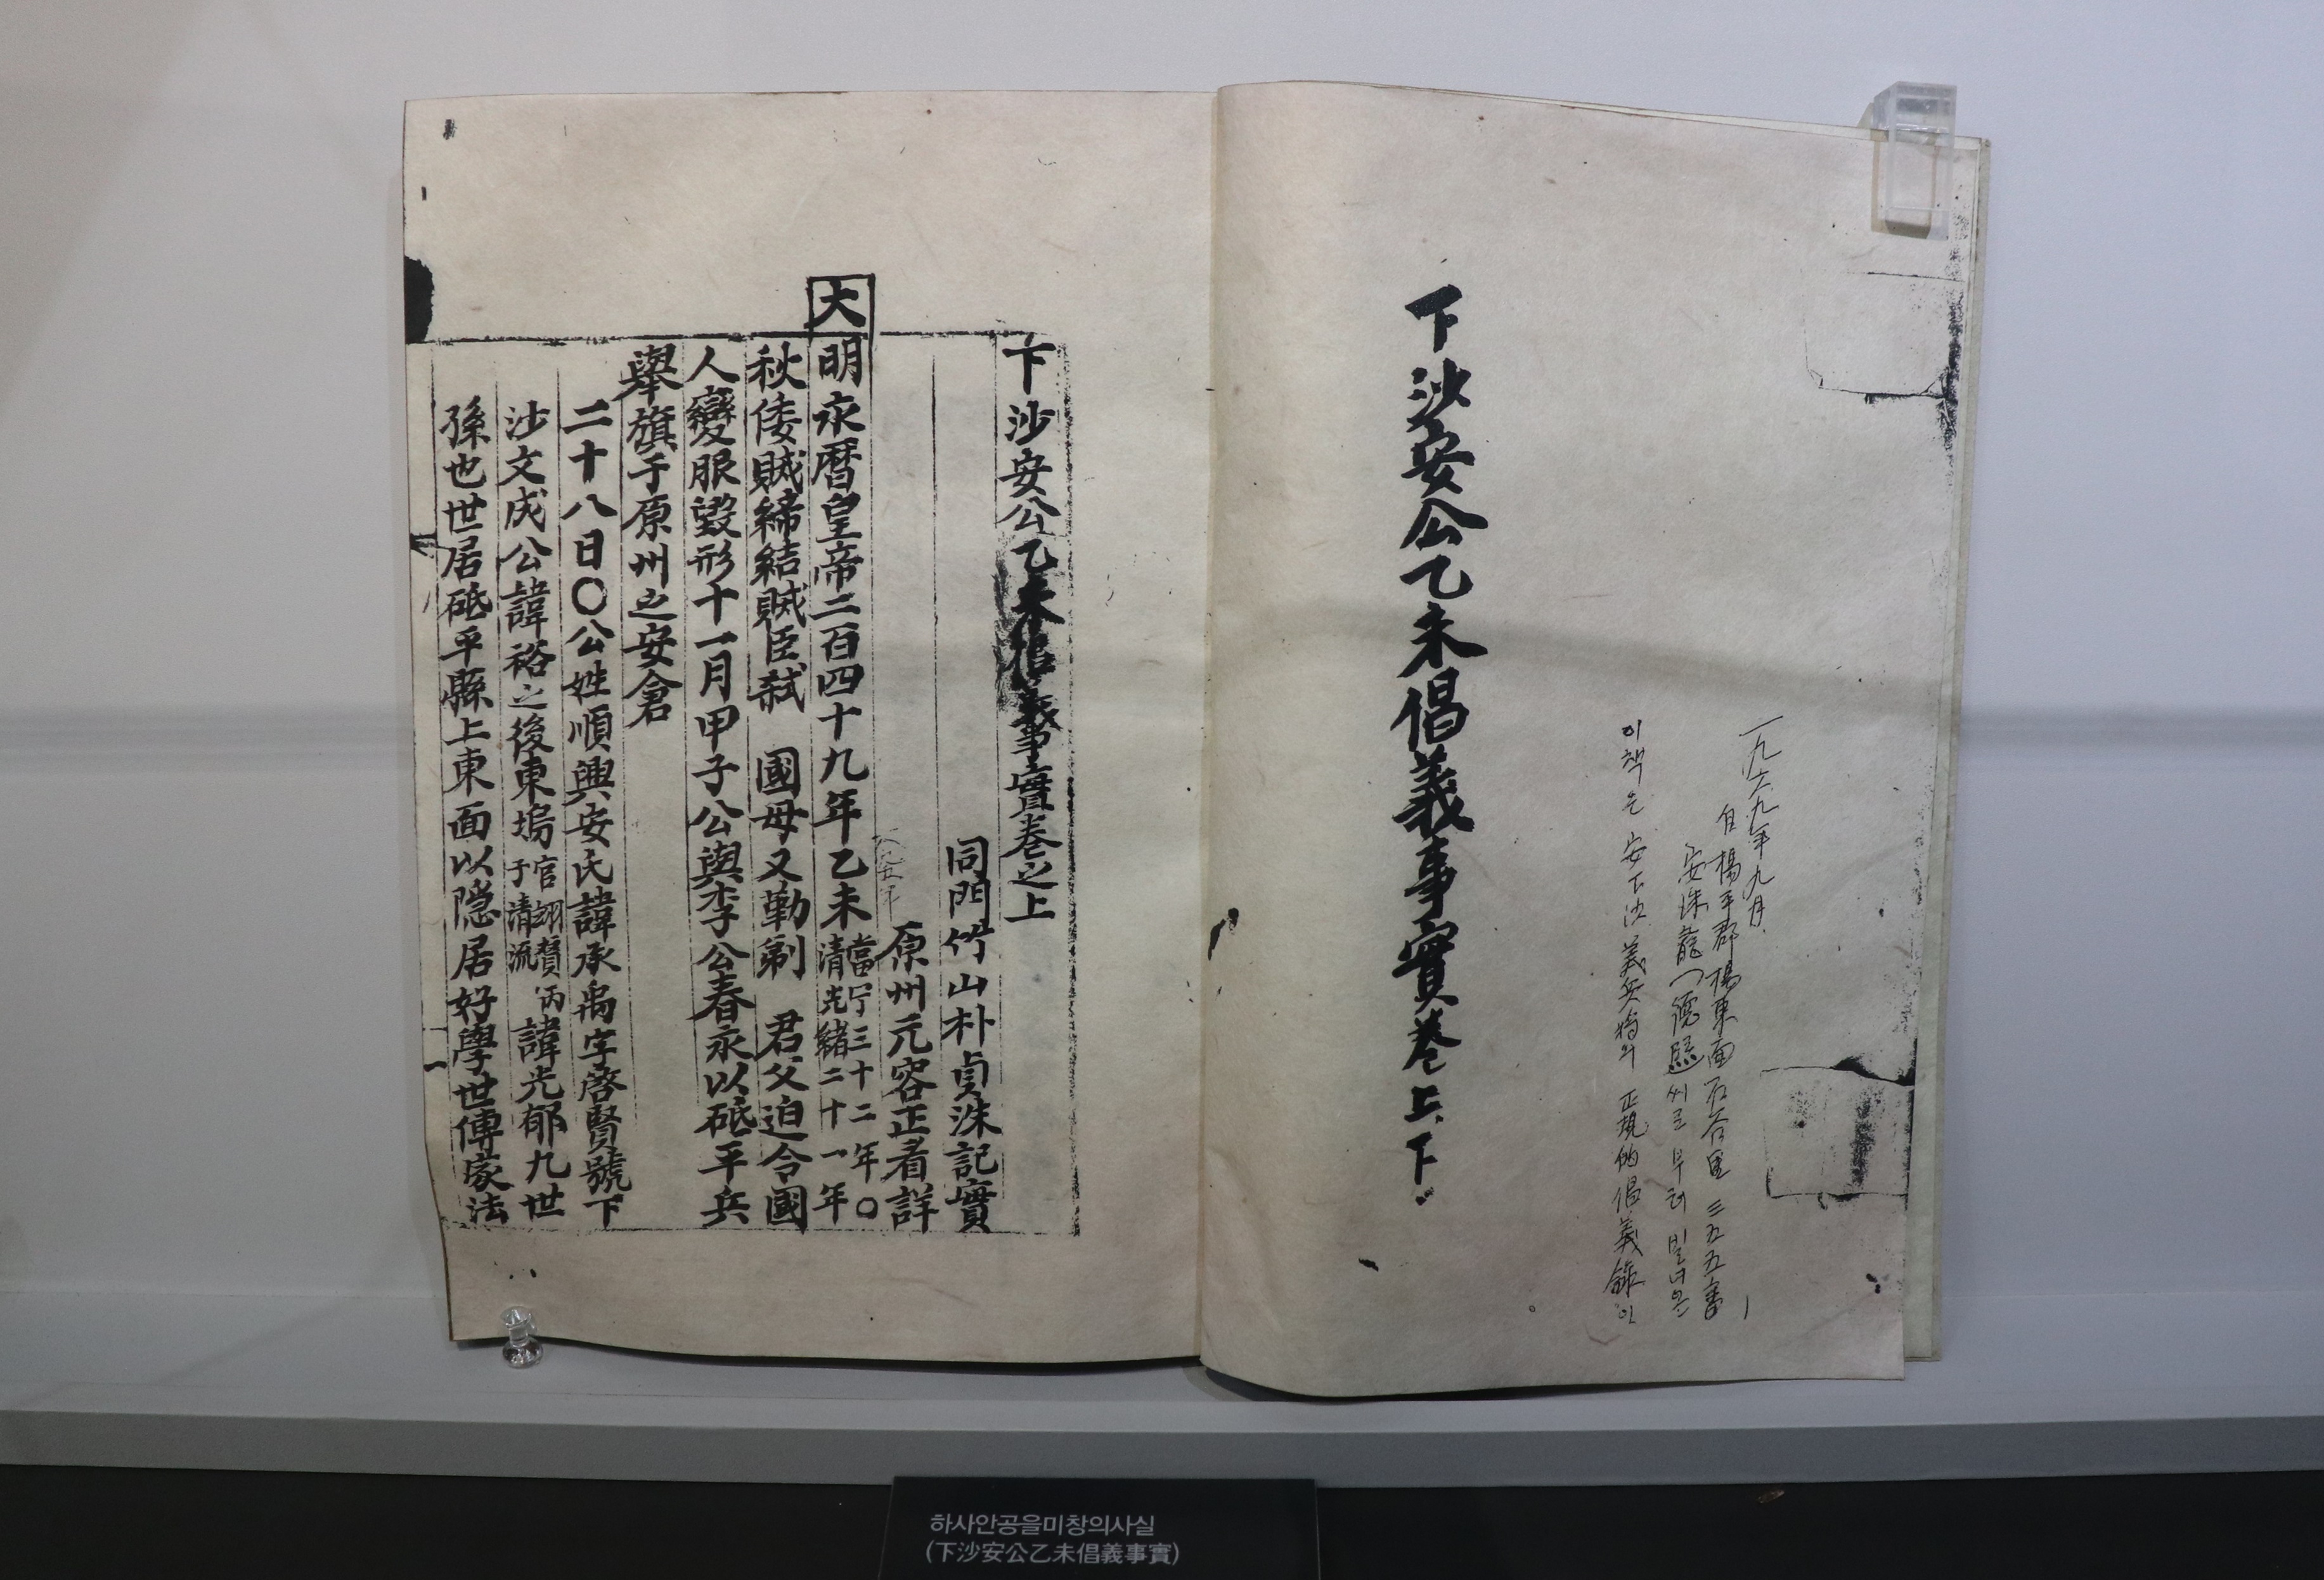 一九六九年九月.
自楊平郡楊東面石谷里 三五五番
安洙龍(德熙씨로부터 빌녀온
이책은 安下沙義兵將의 正規的倡義錄인
下沙安公乙未倡義事實卷上、下
下沙安公乙未倡義事實卷之上
同門竹山朴貞洙記實
原州元容正看詳
大明永曆皇帝二百四十九年乙未當宁三十二年〇清光緒二十一年
秋倭賊締結賊臣弑 國母又勒剃 君父迫令國
人變服毀形十一月甲子公與李公春永以砥平兵
舉旗于原州之安倉
二十八日〇公姓順興安氏諱承禹字啓賢號下
沙文成公諱裕之後東塢官翊贊丙子清流諱光郁九世
孫也世居砥平縣上東面以隱居好學世傳家法
一
하사안공을미창의사실
(下沙安公乙未倡義事實)